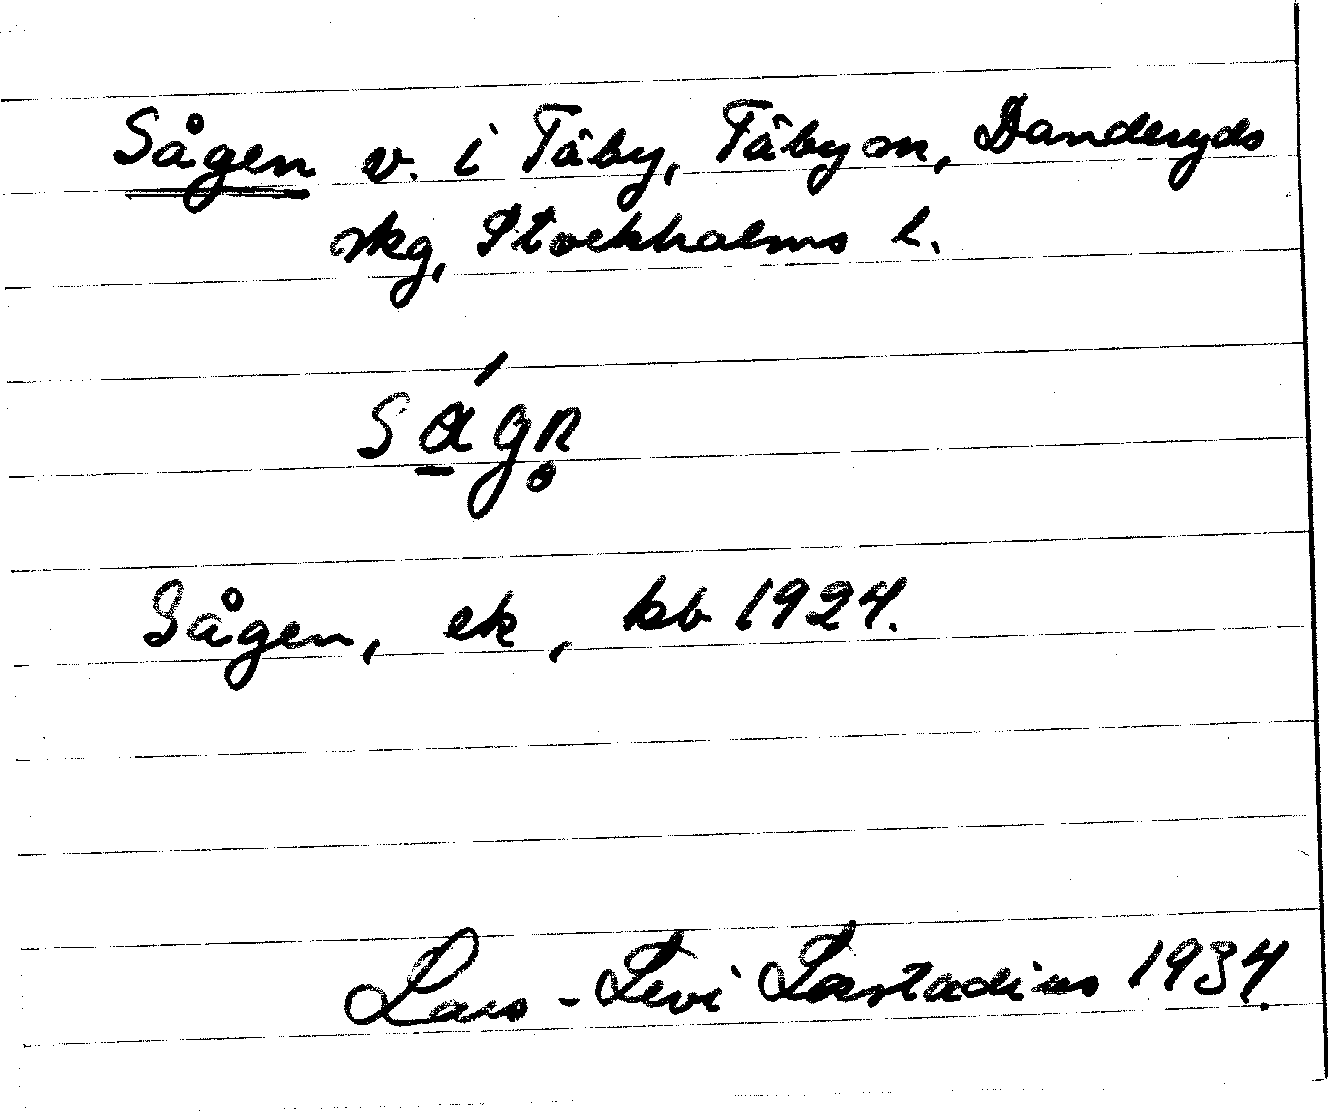 Sågen v. i Täby, Täby sn, Danderyds
skg, Stockholms l.
sά̱gn̥
Sågen, ek, kb 1924.
Lars-Levi Læstadius 1934.